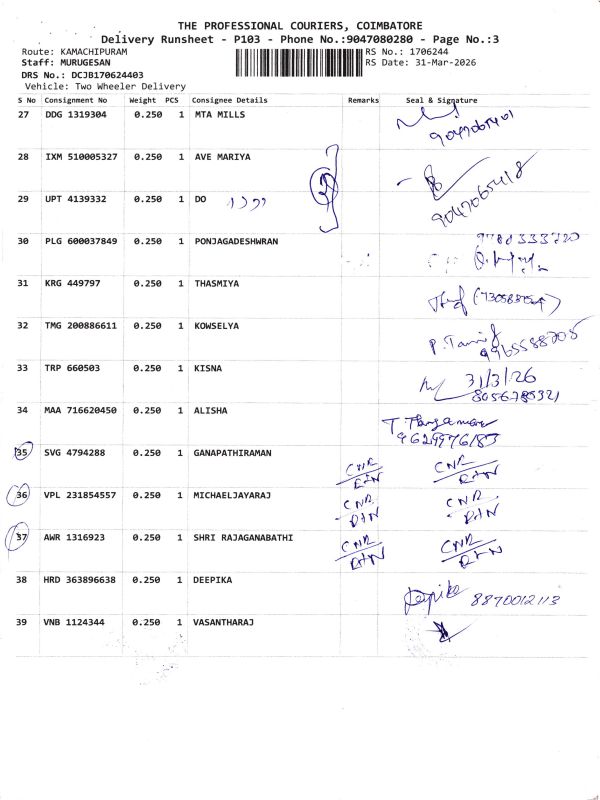 THE PROFESSIONAL COURIERS, COIMBATORE
Delivery Runsheet - P103 - Phone No.:9047080280 - Page No.:3
Route: KAMACHIPURAM RS No.: 1706244
Staff: MURUGESAN RS Date: 31-Mar-2026
DRS No.: DCJB170624403
Vehicle: Two Wheeler Delivery
S No Consignment No Weight PCS Consignee Details Remarks Seal & Signature
27 DDG 1319304 0.250 1 MTA MILLS
28 IXM 510005327 0.250 1 AVE MARIYA
9047065418
29 UPT 4139332 0.250 1 DO
30 PLG 600037849 0.250 1 PONJAGADESHWRAN
31 KRG 449797 0.250 1 THASMIYA
32 TMG 200886611 0.250 1 KOWSELYA
9965588705
33 TRP 660503 0.250 1 KISNA 31/3/26
8056785321
34 MAA 716620450 0.250 1 ALISHA
9629976183
35 SVG 4794288 0.250 1 GANAPATHIRAMAN
CNR CNR
36 VPL 231854557 0.250 1 MICHAELJAYARAJ
CNR CNR
37 AWR 1316923 0.250 1 SHRI RAJAGANABATHI
CNR CNR
38 HRD 363896638 0.250 1 DEEPIKA
Deepika 8870012113
39 VNB 1124344 0.250 1 VASANTHARAJ